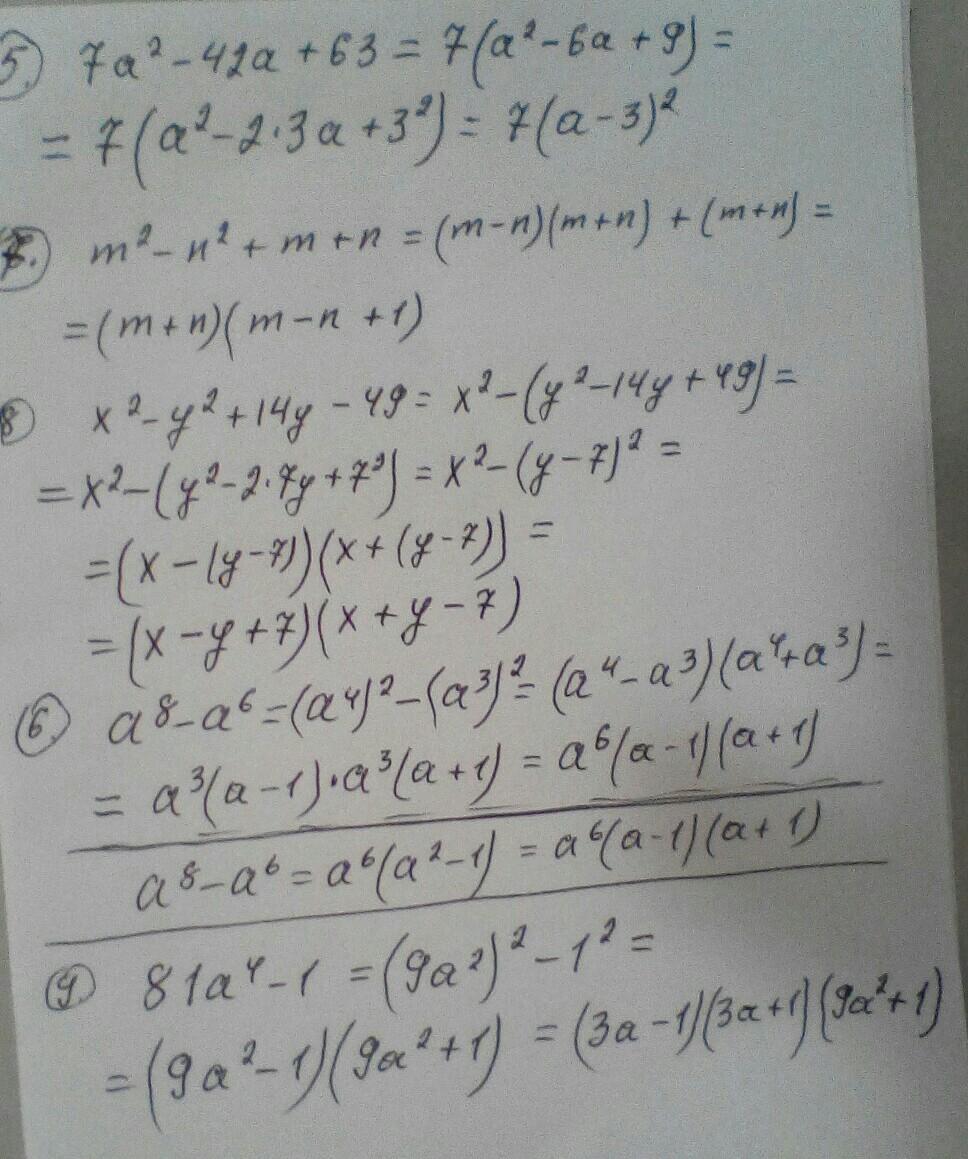 5. 7a² - 42a + 63 = 7(a² - 6a + 9) =
= 7(a² - 2·3a + 3²) = 7(a - 3)²
7. m² - n² + m + n = (m-n)(m+n) + (m+n) =
= (m+n)(m-n+1)
8 x² - y² + 14y - 49 = x² - (y² - 14y + 49) =
= x² - (y² - 2·7y + 7²) = x² - (y - 7)² =
= (x - (y-7))(x + (y-7)) =
= (x - y + 7)(x + y - 7)
6. a⁸ - a⁶ = (a⁴)² - (a³)² = (a⁴ - a³)(a⁴ + a³) =
= a³(a-1)·a³(a+1) = a⁶(a-1)(a+1)
a⁸ - a⁶ = a⁶(a² - 1) = a⁶(a-1)(a+1)
9. 81a⁴ - 1 = (9a²)² - 1² =
= (9a² - 1)(9a² + 1) = (3a - 1)(3a + 1)(9a² + 1)